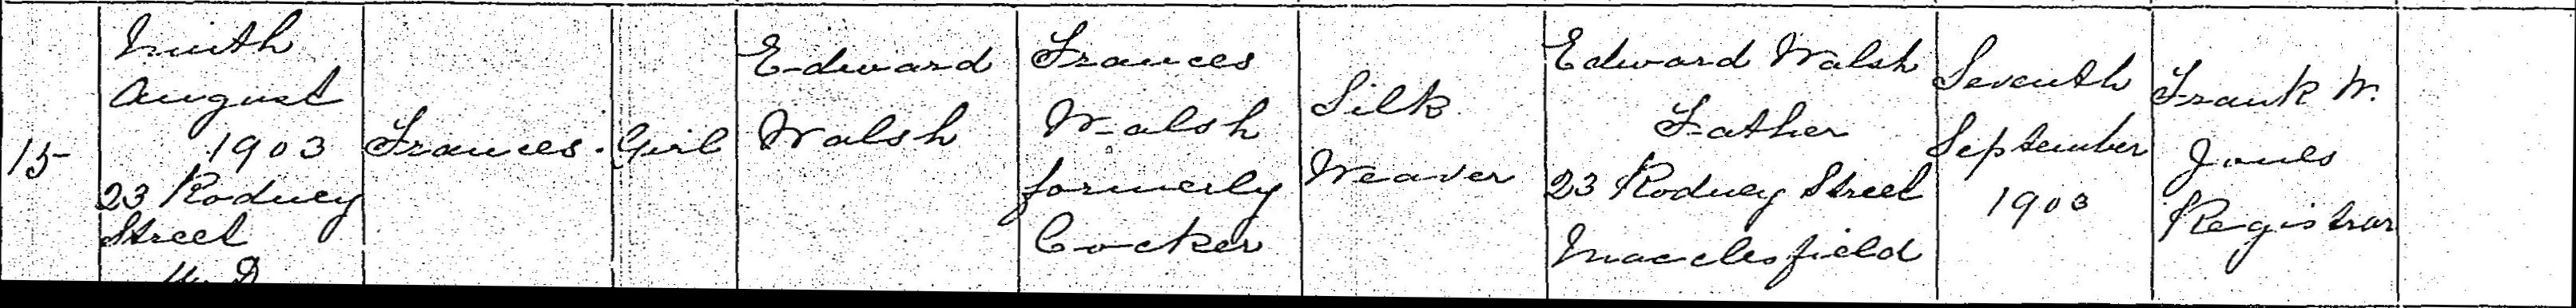 15
Ninth
August
1903
23 Rodney
Street
U. D
Frances.
Girl
Edward
Walsh
Frances
Walsh
formerly
Cocker
Silk
Weaver
Edward Walsh
Father
23 Rodney Street
Macclesfield
Seventh
September
1903
Frank W.
Jones
Registrar